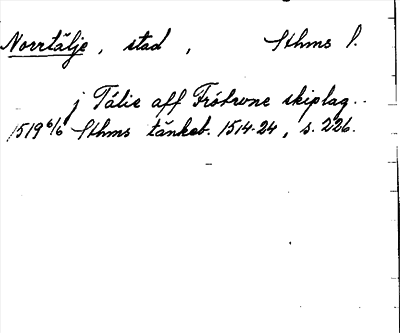 Norrtälje, stad, Sthms l.
j Tálie aff Frótwne skiplag..
1519 6/6 Sthms tänkeb. 1514-24, s. 226.